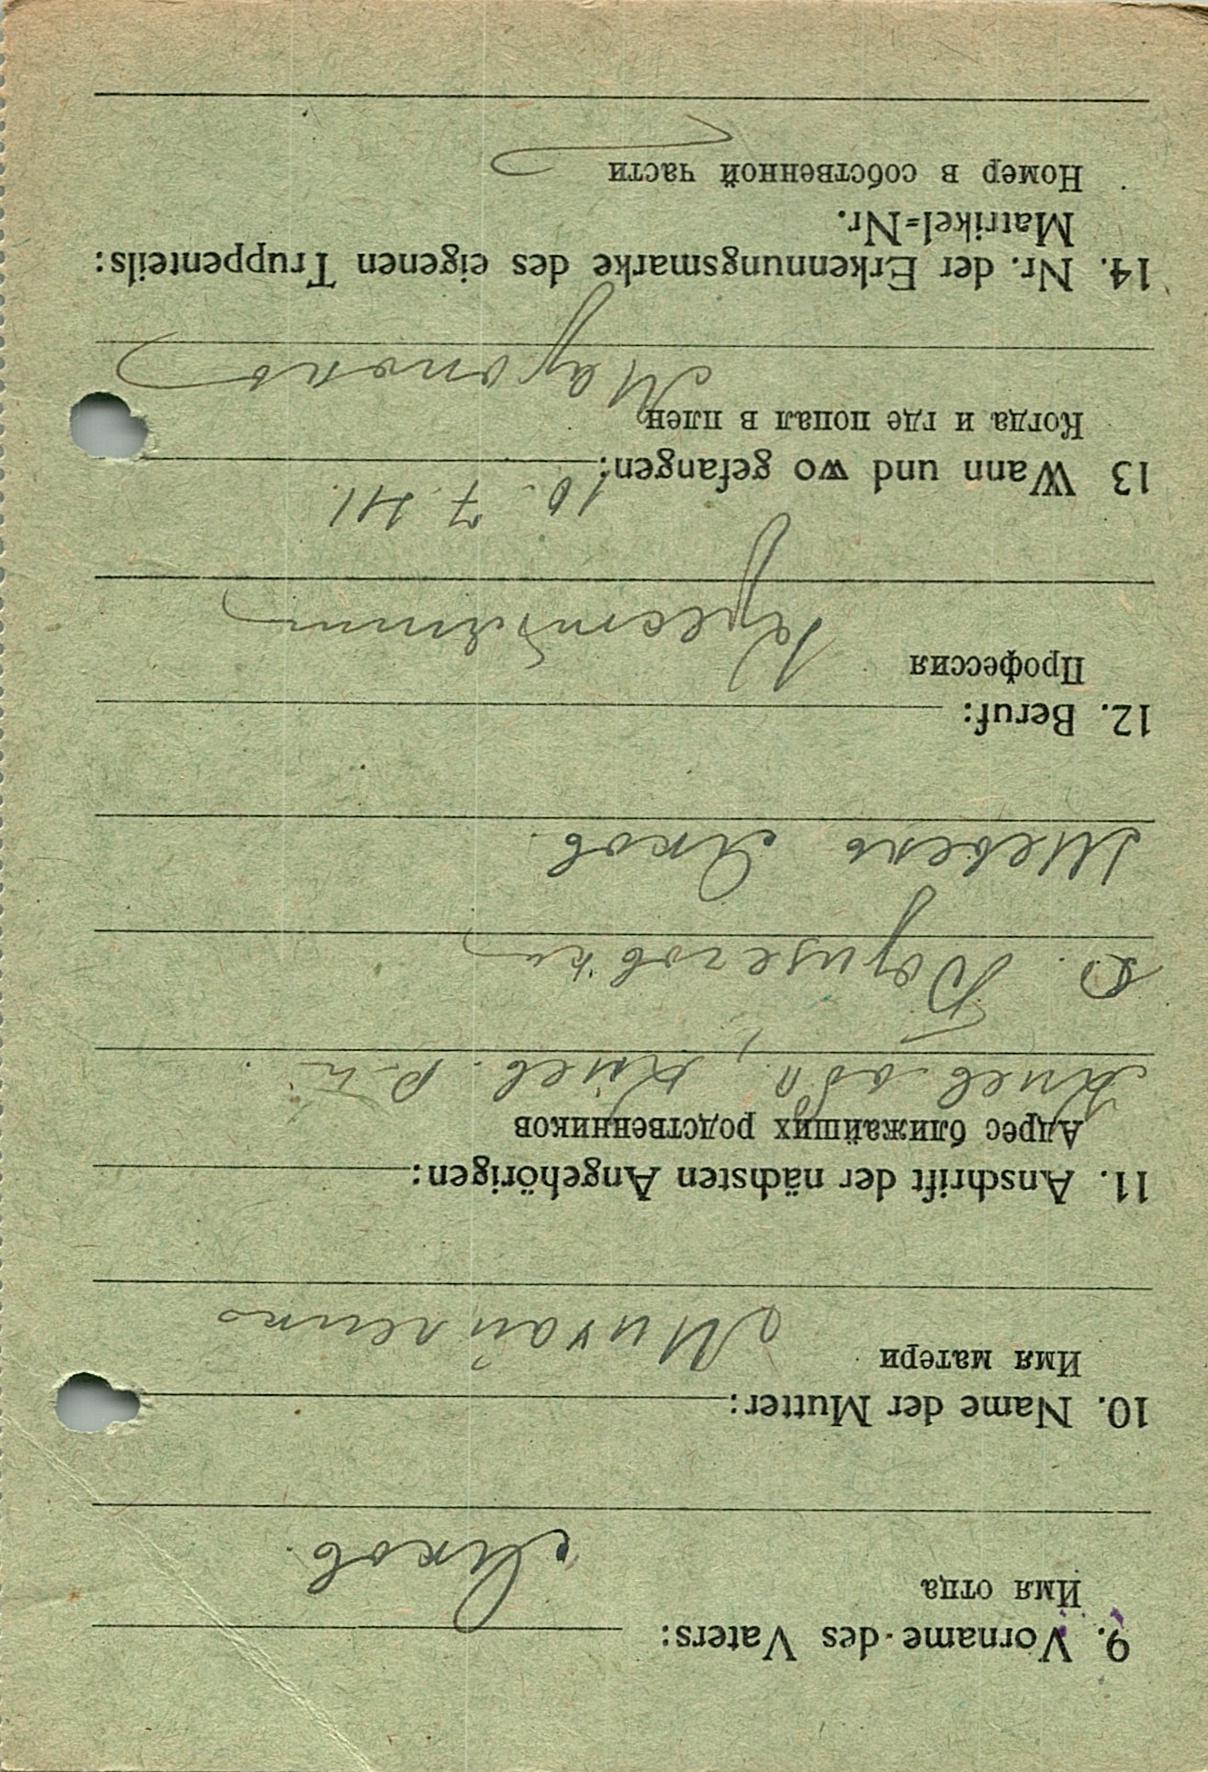 9. Vorname des Vaters:
Имя отца
Яков.
10. Name der Mutter:
Имя матери
Михайленко
11. Anschrift der nächsten Angehörigen:
Адрес ближайших родственников
Киев обл, Киев. р-н.
с.
Яков.
12. Beruf:
Профессия
Крестьянин
13 Wann und wo gefangen:
10. 7. 41.
Когда и где попал в плен
14. Nr. der Erkennungsmarke des eigenen Truppenteils:
Matrikel=Nr.
Номер в собственной части